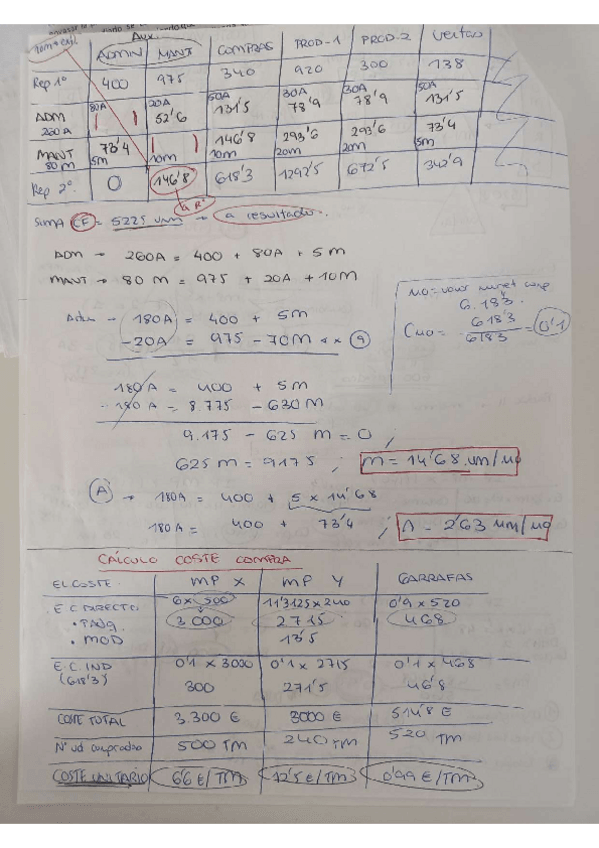 Aux.
ADMIN MANT COMPRAS PROD-1 PROD-2 Ventas
Rep 1º 400 975 340 920 300 138
ADM 260A 80A 20A 52'6 50A 131'5 30A 78'9 30A 78'9 50A 131'5
MANT 80m 73'4 5m 10m 146'8 10m 293'6 20m 293'6 20m 73'4 5m
Rep 2º 0 146'8 618'3 1292'5 672'5 342'9
a Rº
SUMA CF = 5225 um → a resultado.
ADM → 260A = 400 + 80A + 5m
MANT → 80m = 975 + 20A + 10m
Adm → 180A = 400 + 5m
-20A = 975 - 70m (9)
6.183
Cuo = 6183 / 6183 = 0'1
180A = 400 + 5m
-180A = 8.775 - 630m
9.175 - 625 m = 0 ;
625 m = 9175 ; m = 14'68 um/ug
(A) → 180A = 400 + 5 x 14'68
180A = 400 + 73'4 ; A = 2'63 um/ug
CÁLCULO COSTE COMPRA
EL COSTE. MP X MP Y GARRAFAS
E.C DIRECTO 6 x 500 11'3125 x 240 0'9 x 520
3.000 2715 468
• MOD 13'5
E.C. IND 0'1 x 3000 0'1 x 2715 0'1 x 468
(618'3) 300 271'5 46'8
COSTE TOTAL 3.300 € 3000 € 514'8 €
Nº ud compradas 500 TM 240 TM 520 TM
COSTE UNITARIO 6'6 €/TM 12'5 €/TM 0'99 €/TM